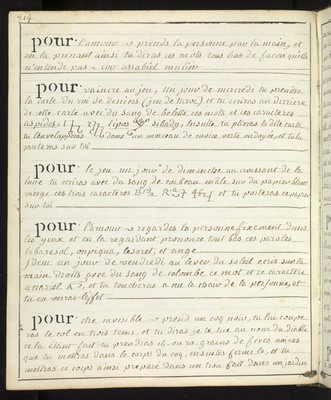 214
pour l'amour prends la personne par la main, et
en la prenant ainsi tu diras ces mots tous bas de facon quelle
n'entende pas
pour vaincre au jeu, un jour de mercredi tu prendra
la carte du roi de deniers (jeu de tarot) et tu ecriras au derriere
de cette carte avec du sang de belette ces mots et ces caracteres
ensuite tu plieras la dite carte
dans un morceau de
porteras sur toi
pour le jeu un jour de dimanche au croissant de la
lune tu ecriras avec du sang de corbeau male sur du papier
vierge ces trois caracteres et tu porteras ce papier
sur toi
pour l'amour regardes la personne fixement dans
les yeux et en la regardant prononce tout bas ces paroles
et ange
Idem un jour de vendredi au lever du soleil ecris sur ta
main droite avec du sang de colombe ce mot et ce caractere
et tu toucheras a nu la chair de la personne, et
tu en verras l'effet
pour etre invisible prend un coq noir, tu lui coupe
ras le col en trois tems, et tu diras je te tue au nom du diable
cela etant fait tu prendras grains de feves noires
que tu mettras dans le corps du coq, ensuite ferme le, et tu
mettras ce corps ainsi preparé dans un trou fait dans un jardin